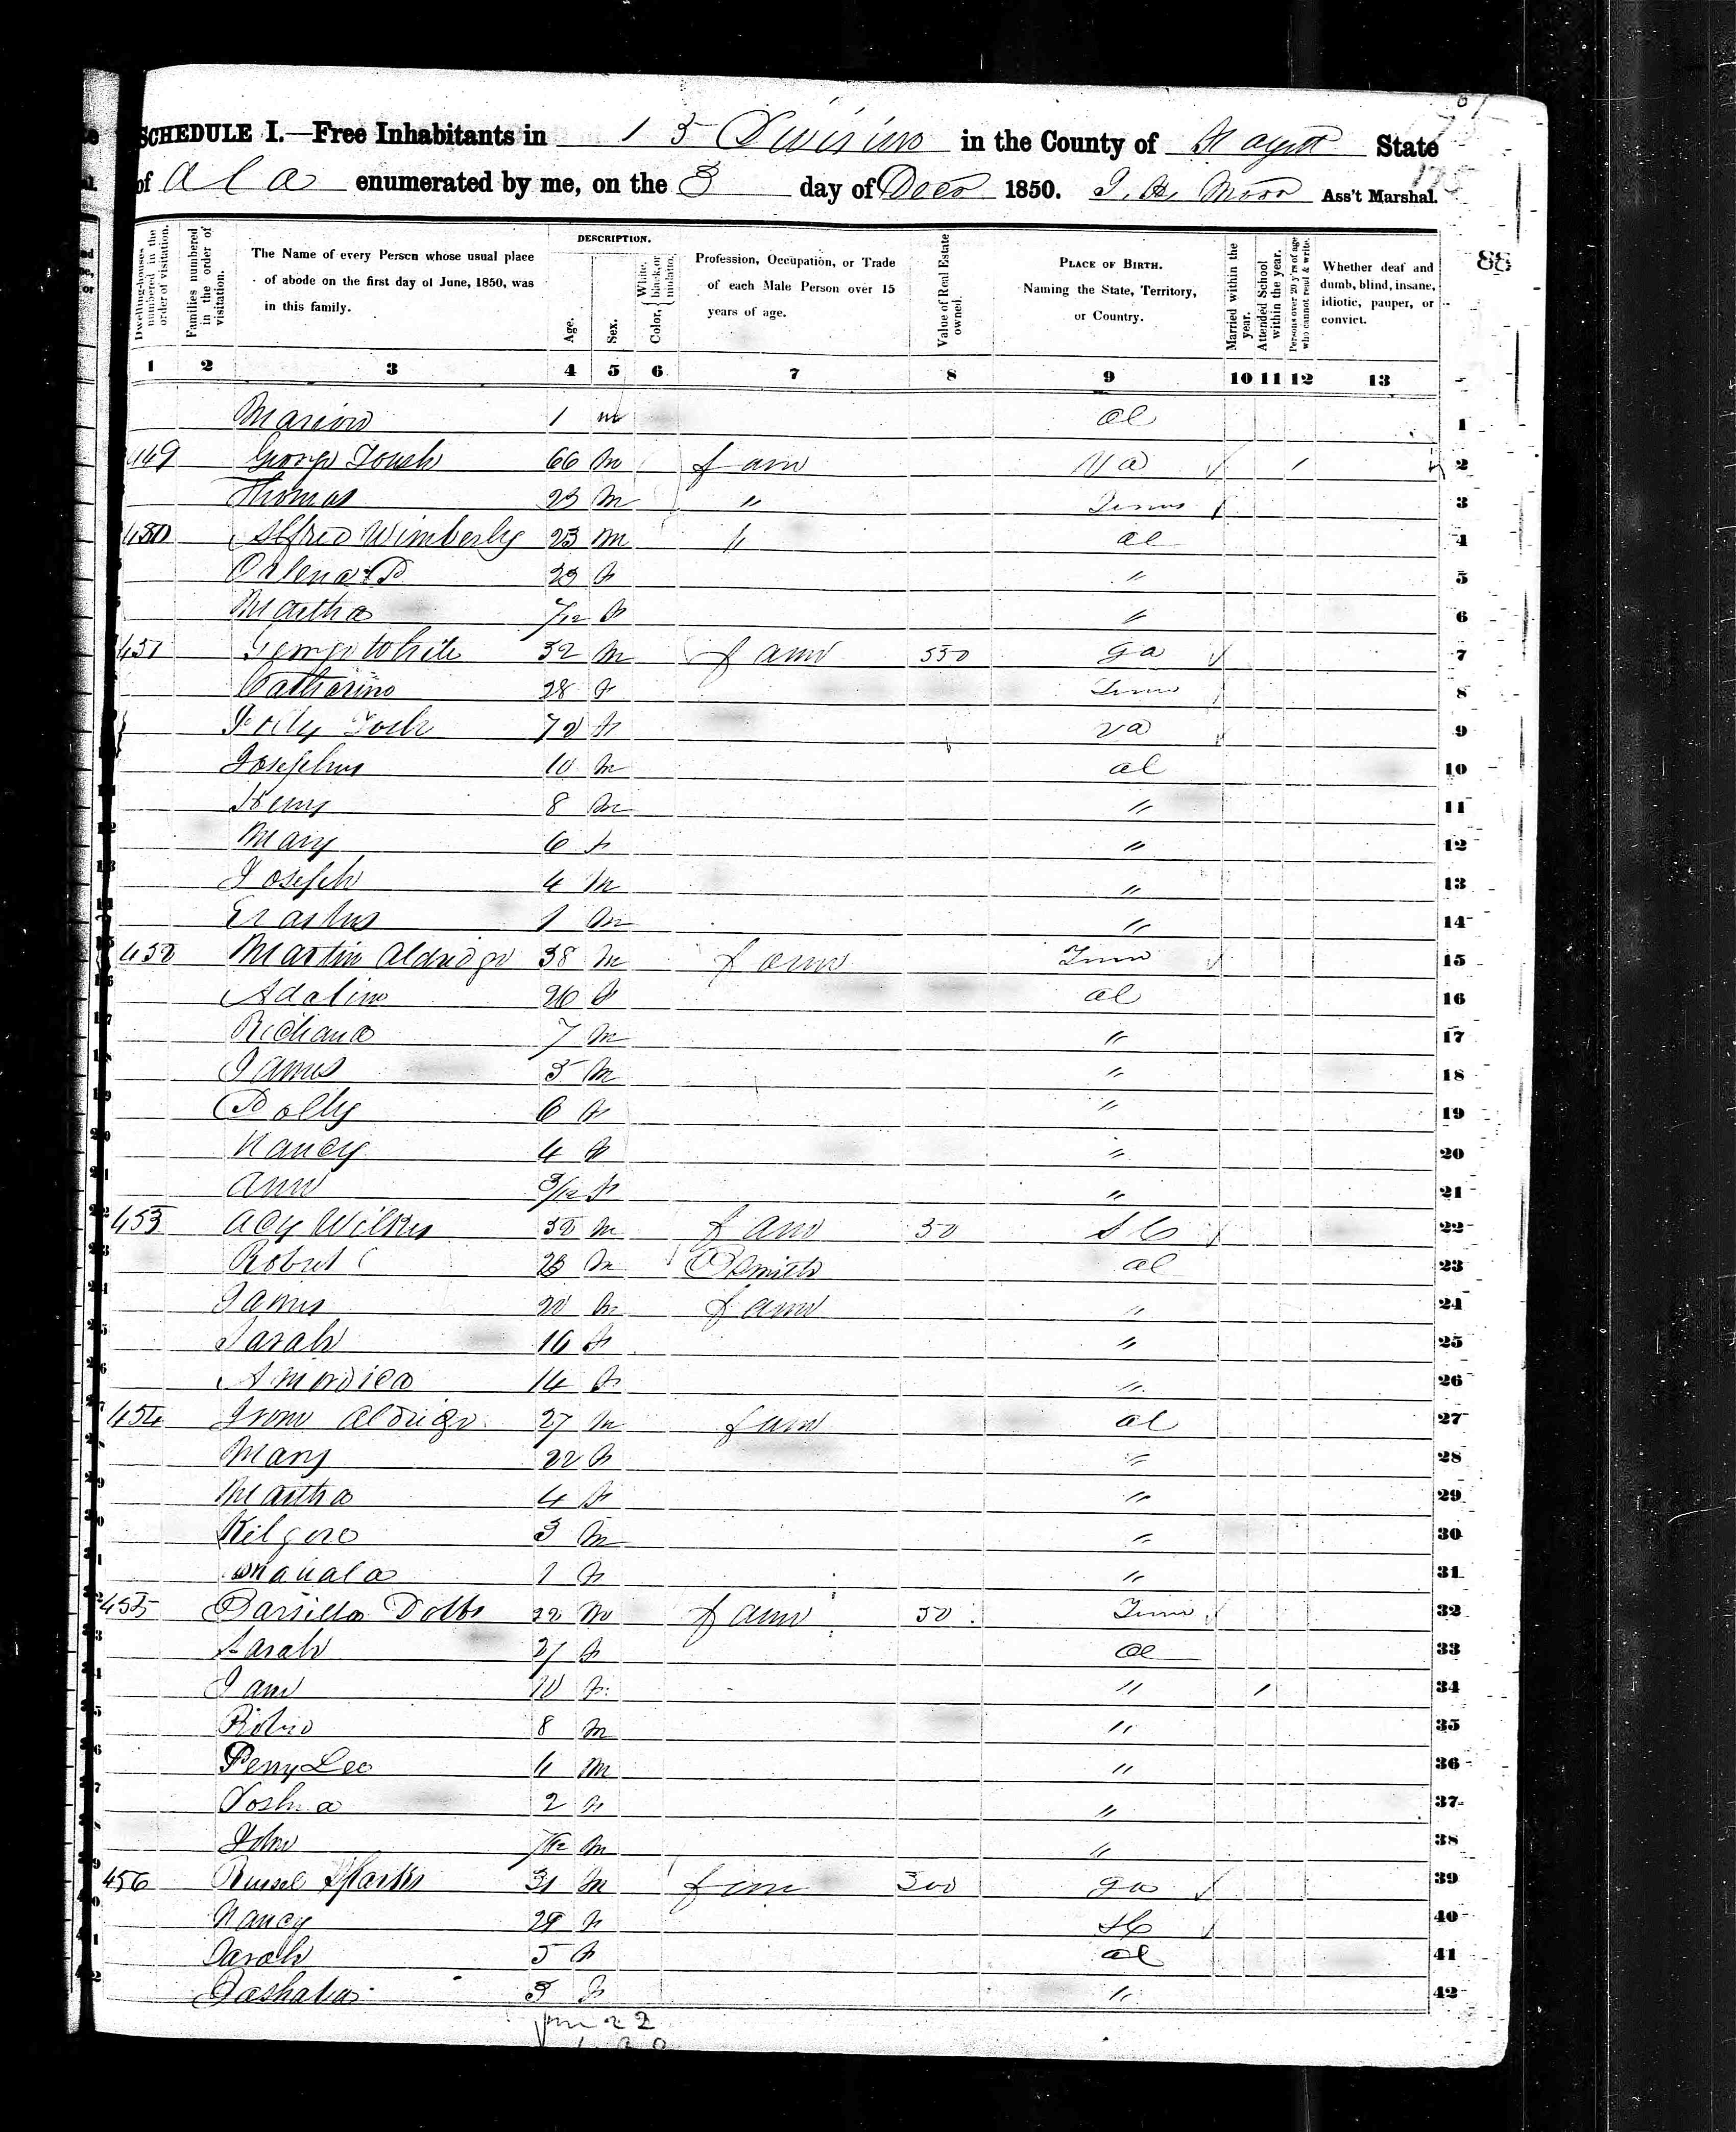 SCHEDULE I.—Free Inhabitants in 13 Division in the County of Fayett State
of Ala enumerated by me, on the 3 day of Decr 1850. Ass't Marshal.
DESCRIPTION.
Dwelling-houses numbered in the order of visitation.
Families numbered in the order of visitation.
The Name of every Person whose usual place of abode on the first day of June, 1850, was in this family.
Age.
Sex.
Color, { White, black, or mulatto.
Profession, Occupation, or Trade of each Male Person over 15 years of age.
Value of Real Estate owned.
PLACE OF BIRTH. Naming the State, Territory, or Country.
Married within the year.
Attended School within the year.
Persons over 20 y'rs of age who cannot read & write.
Whether deaf and dumb, blind, insane, idiotic, pauper, or convict.
88
1 2 3 4 5 6 7 8 9 10 11 12 13
Marion 1 m al 1
449 George 66 m farm Va 2
Thomas 23 m " Tenn 3
450 Alfred Wimberly 23 m " al 4
23 f " 5
Martha 7/12 f " 6
451 George White 32 m farm 550 ga 7
Catharine 28 f Tenn 8
Polly 70 f va 9
Josephus 10 m al 10
Henry 8 m " 11
Mary 6 f " 12
Joseph 4 m " 13
Erastus 1 m " 14
452 Martin Aldridge 38 m farm Tenn 15
Adaline 26 f al 16
Richard 7 m " 17
James 5 m " 18
Polly 6 f " 19
Nancy 4 f " 20
Ann 3/12 f " 21
453 m farm 50 S C 22
Robert 23 m Smith al 23
James 20 m farm " 24
Sarah 16 f " 25
America 14 f " 26
454 Aldridge 27 m farm al 27
Mary 22 f " 28
Martha 4 f " 29
Kilgore 3 m " 30
Mahala 1 f " 31
455 Dobbs m farm 50 Tenn 32
Sarah 27 f al 33
Jane 10 f " 34
8 m " 35
Perry Lee m " 36
Joshua 2 " 37
John m " 38
456 Russel Sparks 31 m farm 300 ga 39
Nancy 29 f S C 40
Sarah 5 f al 41
3 f " 42